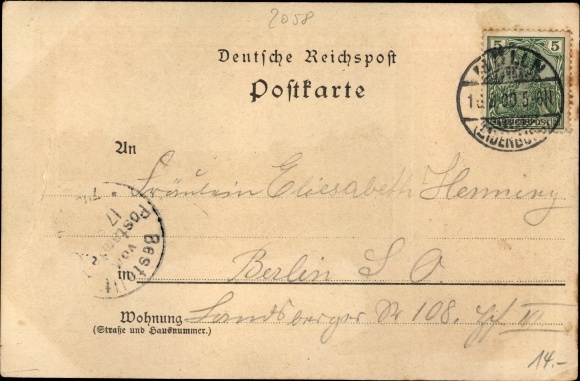 2058
Deutsche Reichspost
Postkarte
5 5
REICHSPOST
An
Fräulein Eliesabeth Henning
Bestellt
vom
Postamte
17
in Berlin S. O.
Wohnung Landsberger Str 108. Hof III
(Straße und Hausnummer.)
14.-